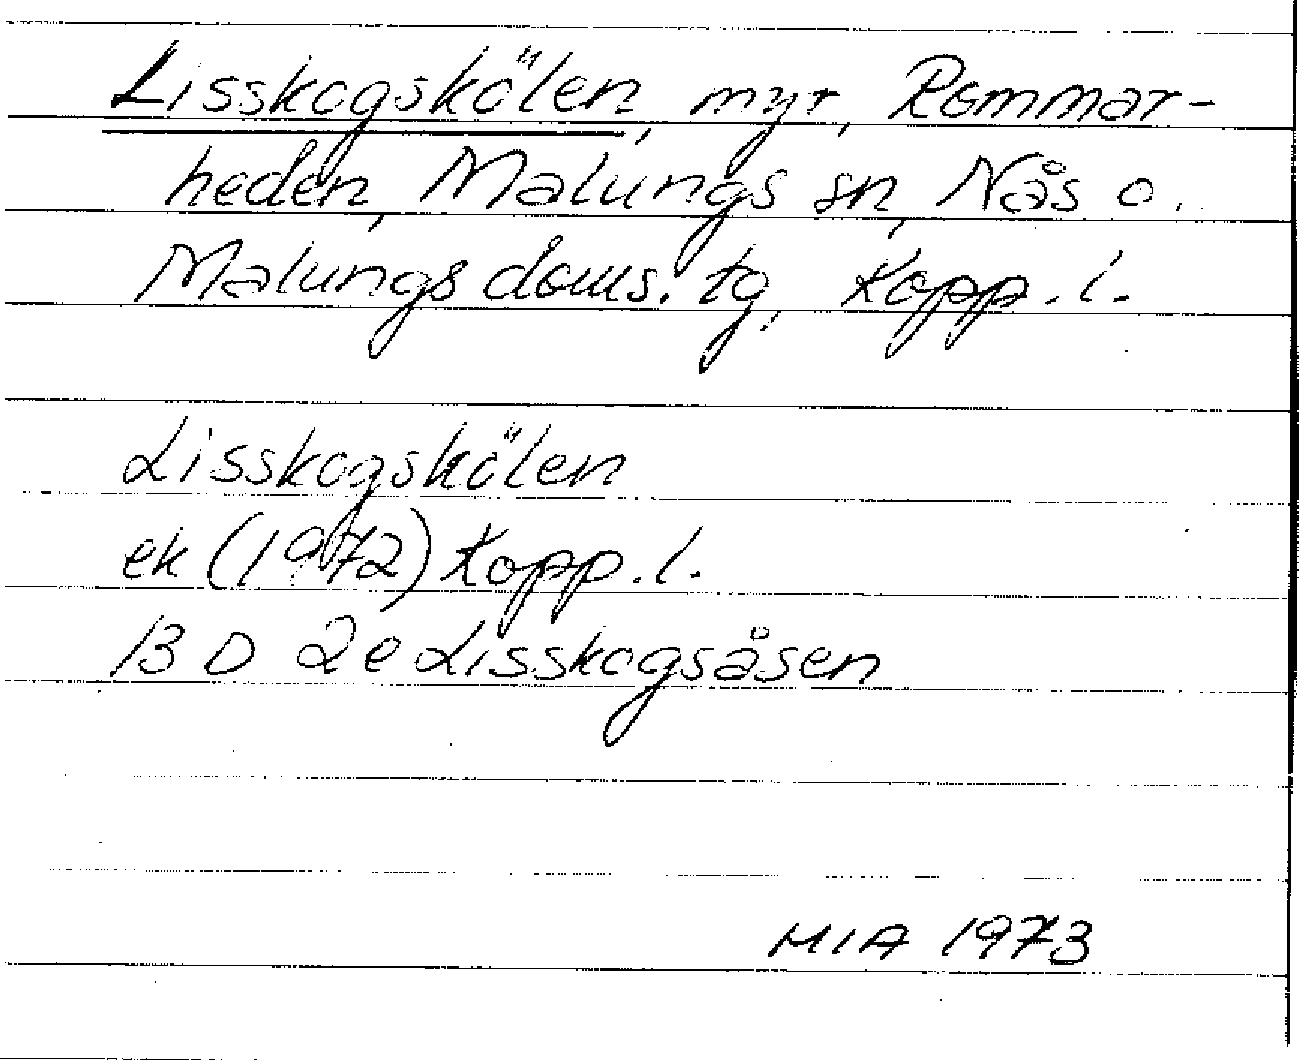 Lisskogskölen, myr, Rommar-
heden, Malungs sn, Nås o.
Malungs doms. tg, Kopp. l.
Lisskogskölen
ek (1972) Kopp. l.
13 D 2e Lisskogsåsen
MIA 1973